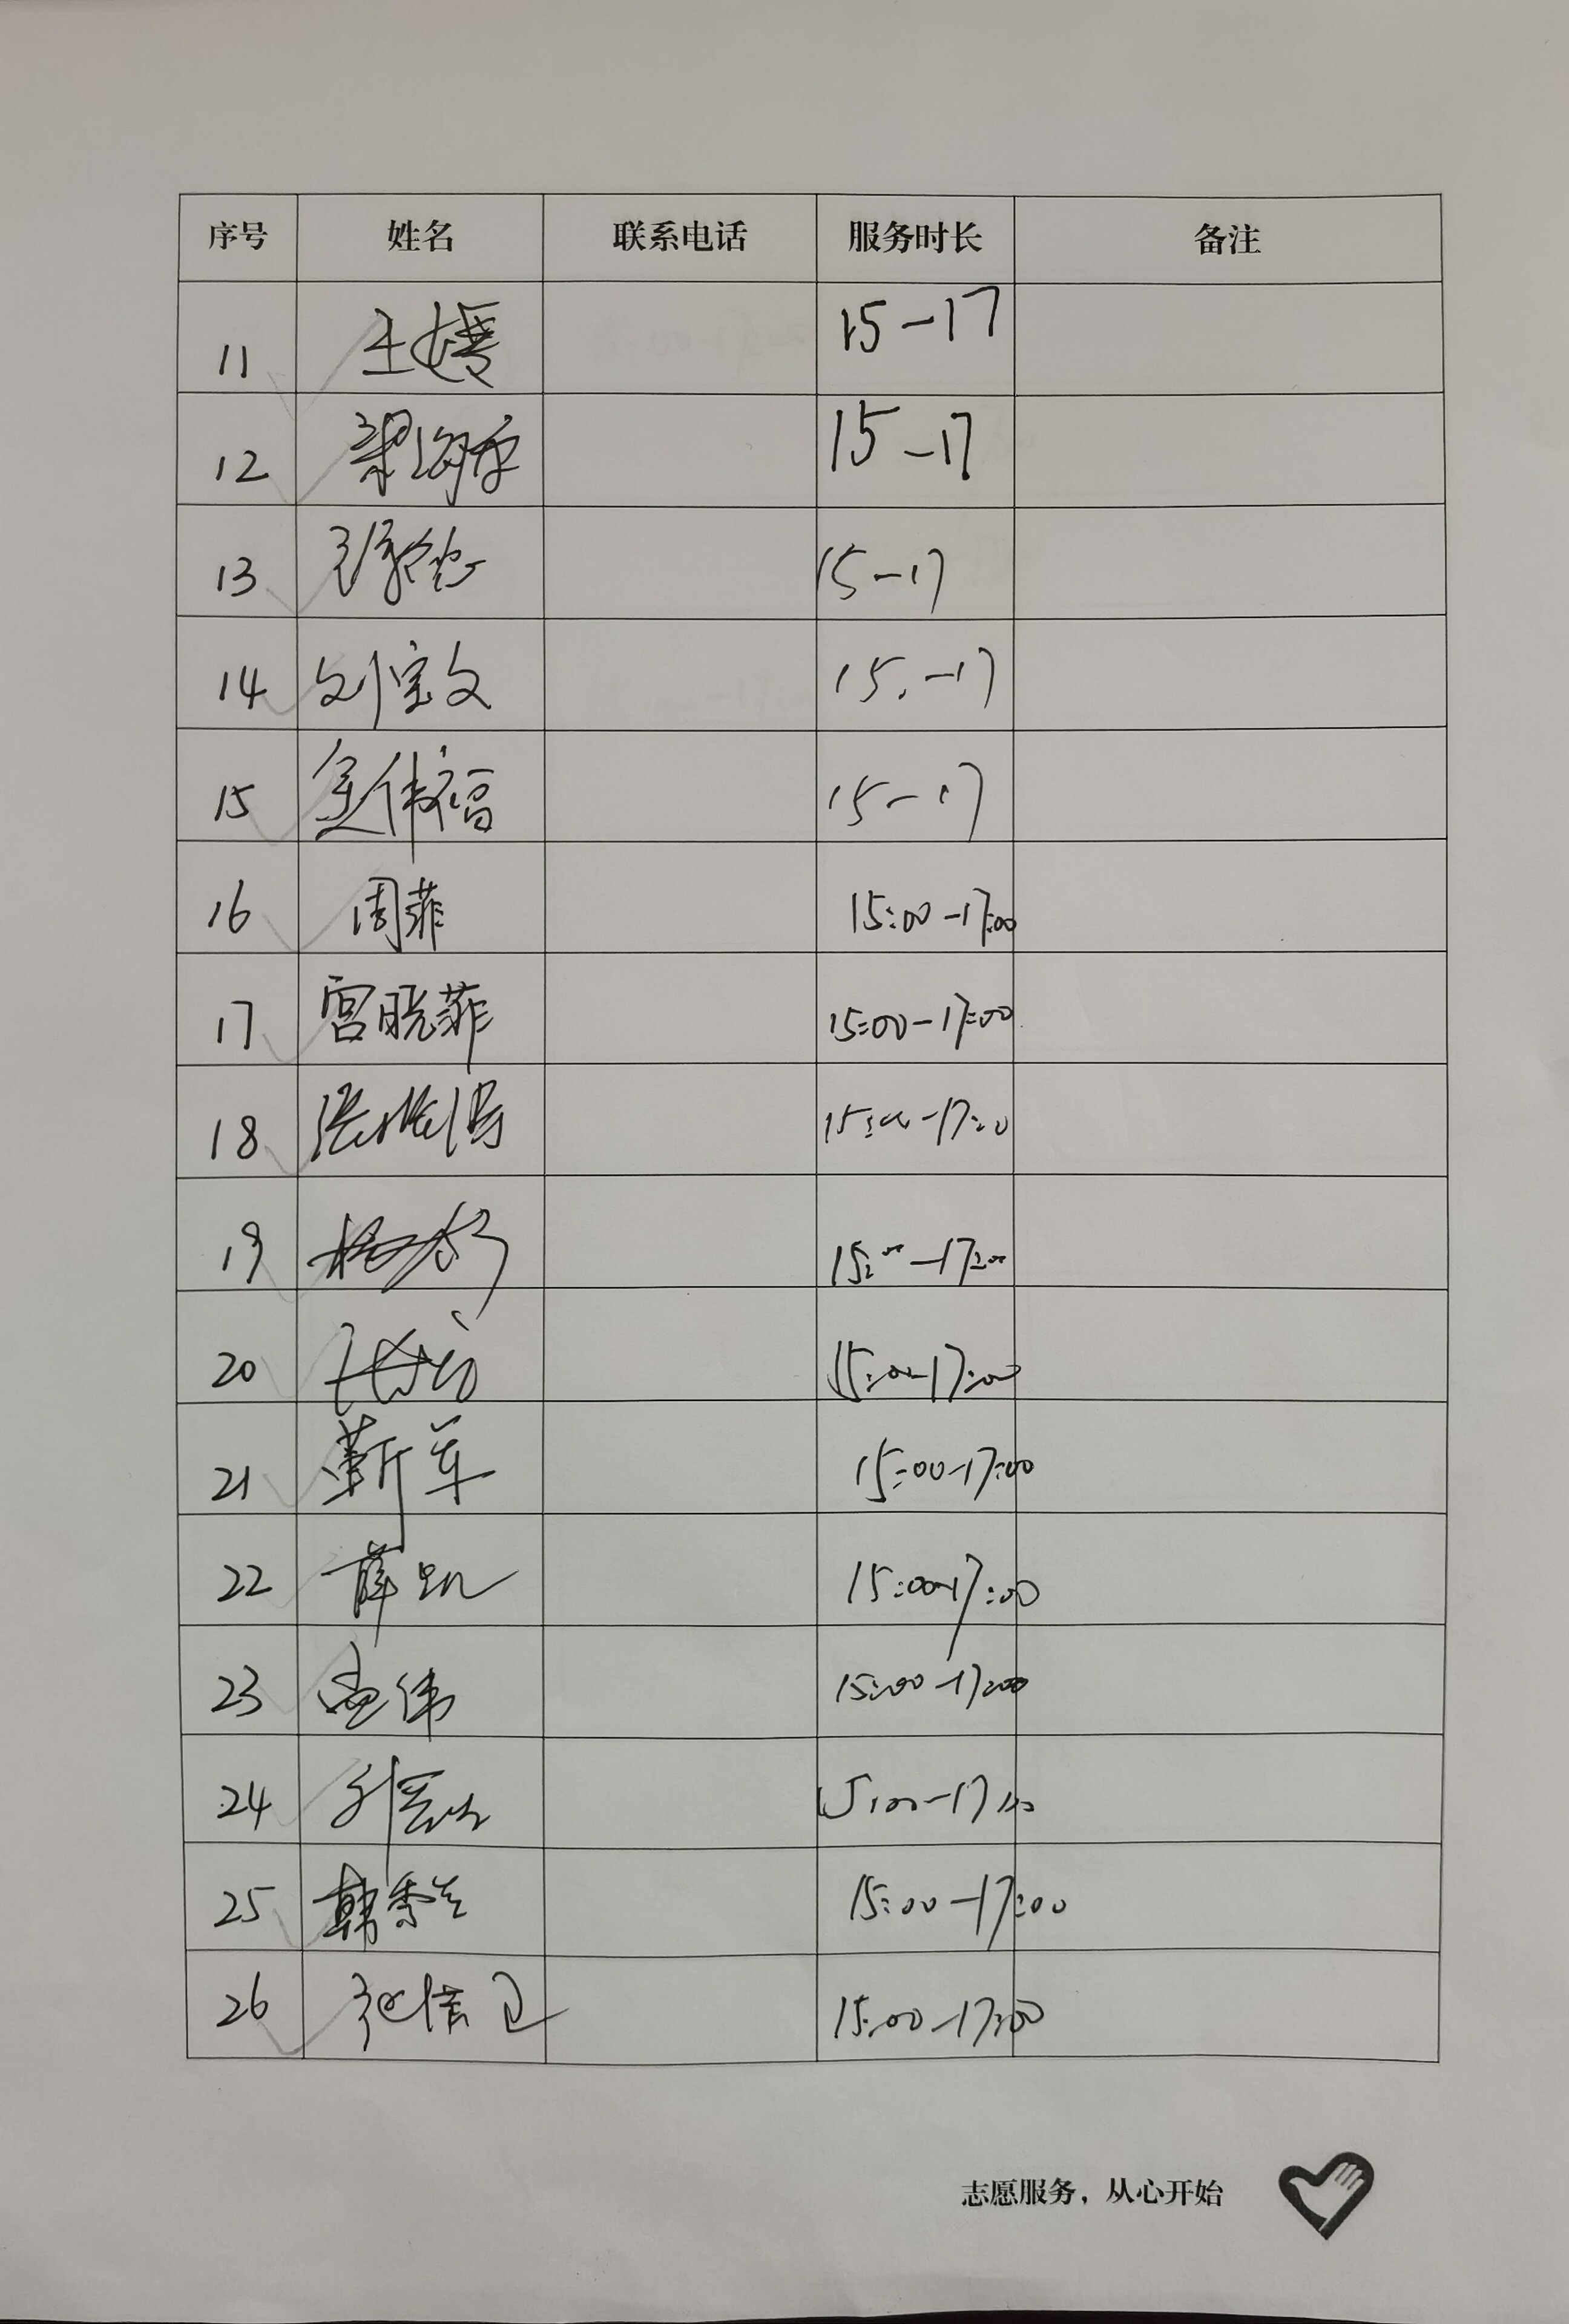 序号 姓名 联系电话 服务时长 备注
11 王媛 15-17
12 15-17
13 15-17
14 刘宝文 15.-17
15 金伟福 15-17
16 周菲 15:00-17:00
17 宫晓菲 15:00-17:00
18 15:00-17:00
19 15:00-17:00
20 15:00-17:00
21 靳军 15:00-17:00
22 薛凯 15:00-17:00
23 孟伟 15:00-17:00
24 15:00-17:00
25 韩秀兰 15:00-17:00
26 张信卫 15:00-17:00
志愿服务，从心开始